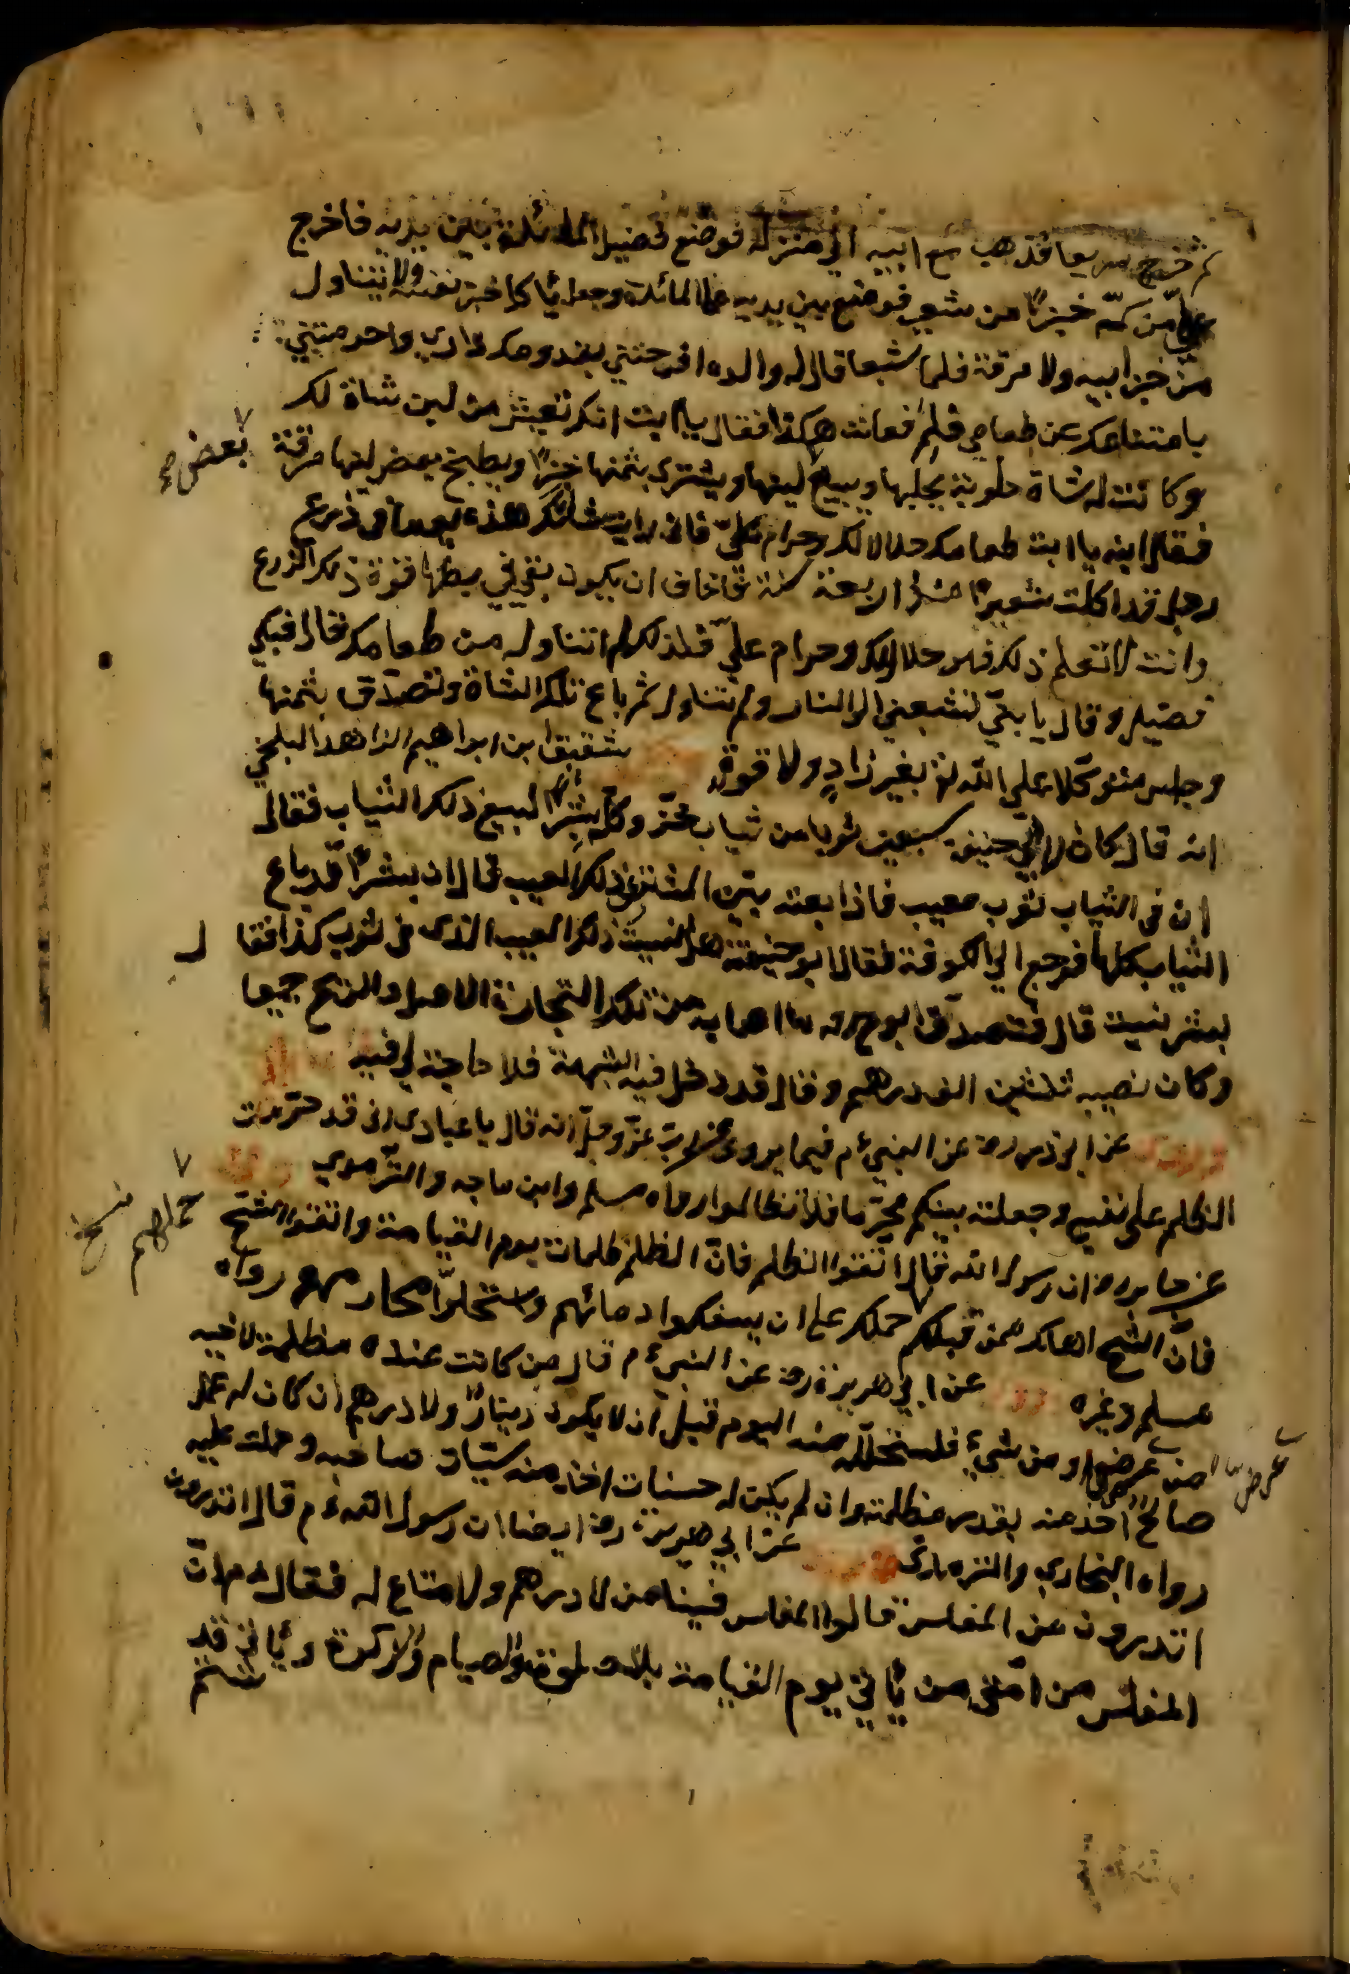 ثم خرج سريعا فذهب مع ابيه الى منزله فوضع فضيل المائدة بين يديه فاخرج
علي من كمه خبزا من شعير فوضع بين يديه على المائدة وجعل يأكل خبز نفسه ولا يتناول
من خبز ابيه ولا مرقة فلما شبعا قال له والده
بامتناعك عن طعامي فلم فعلت هكذا فقال يا ابت انك تعيش من لبن شاة لك
وكانت له شاة حلوبة يحلبها ويبيع لبنها ويشتري بثمنها خبزا ويطبخ ببعض لبنها مرقة
بعض
فقال ابنه يا ابت طعامك حلال لك وحرام علي فاني رايت شاتك هذه يوما في زرع
رجل قد اكلت شعيرا منذ اربعة سنة فاخاف ان يكون بقي في بطنها قوة ذلك الزرع
وانت لا تعلم ذلك فهو حلال لك وحرام علي فلذلك لم اتناول من طعامك قال فبكى
فضيل وقال يا بني لتشبعني الى النار ولم يتناول ثم باع تلك الشاة وتصدق بثمنها
وجلس متوكلا على الله تع بغير زاد ولا قوة شقيق ابن ابراهيم الزاهد البلخي
انه قال كان لابي حنيفة سبعين ثوبا من ثياب خز وكل بشرا لبيع ذلك الثياب فقال
ان في الثياب ثوب معيب فاذا بعته بين المشتري ذلك العيب قال ان بشرا قد باع
الثياب بكلها فرجع الى الكوفة فقال ابو حنيفة هل بينت ذلك العيب الذي في ثوب كذا فقال
بشر نسيت قال فتصدق ابو ح رح ما اصابه من تلك التجارة الاصل والربح جميعا
وكان نصيبه ثلثين الف درهم وقال قد دخل فيه الشبهة فلا حاجة لي فيه
عن ابي ذر رض عن النبي ع م فيما يروي عن رب عز وجل انه قال يا عبادي اني قد حرمت
الظلم على نفسي وجعلته بينكم محرما فلا تظالموا رواه مسلم وابن ماجه والترمذي
عن جابر رض ان رسول الله قال اتقوا الظلم فان الظلم ظلمات يوم القيامة واتقوا الشح
حملهم نسخ
فان الشح اهلك من قبلكم حملكم على ان يسفكوا دمائهم واستحلوا محارمهم رواه
مسلم وغيره عن ابي هريرة رض عن النبي ع م قال من كانت عنده مظلمة لاخيه
من عرض او من شيء فليستحلله منه اليوم قبل ان لا يكون دينار ولا درهم ان كان له عمل
عرض
صالح اخذ منه بقدر مظلمته وان لم يكن له حسنات اخذ منه سيئات صاحبه وحملت عليه
رواه البخاري والترمذي عن ابي هريرة رض ايضا ان رسول الله ع م قال اتدرون
اتدرون من المفلس قالوا المفلس فينا من لا درهم ولا متاع له فقال ع م ان
المفلس من امتي من يأتي يوم القيامة بالصلوة والصيام والزكوة ويأتي قد
شتم